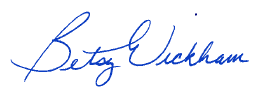 Betsy Wickham